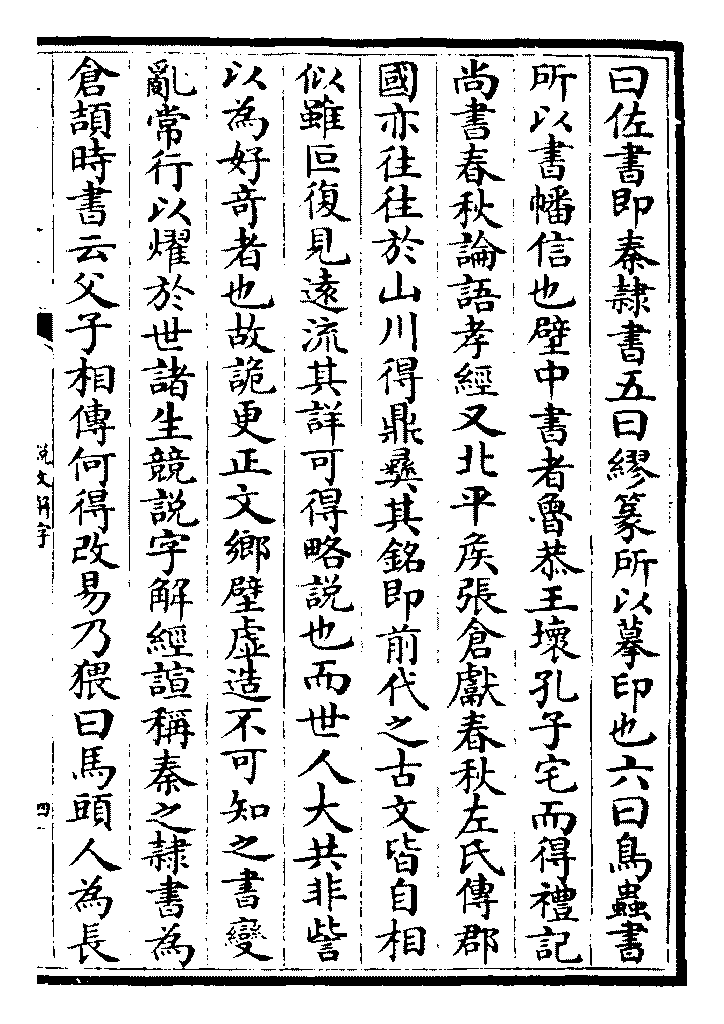 曰佐書即秦隷書五曰繆篆所以摹印也六曰鳥蟲書
所以書幡信也壁中書者魯恭王壞孔子宅而得禮記
尚書春秋論語孝經又北平矦張倉獻春秋左氏傳郡
國亦往往於山川得鼎彝其銘即前代之古文皆自相
似雖叵復見遠流其詳可得略説也而世人大共非訾
以為好竒者也故詭更正文鄉壁虚造不可知之書變
亂常行以燿於世諸生競説字解經諠稱秦之隷書為
倉頡時書云父子相傳何得改易乃猥曰馬頭人為長
説文解字
四